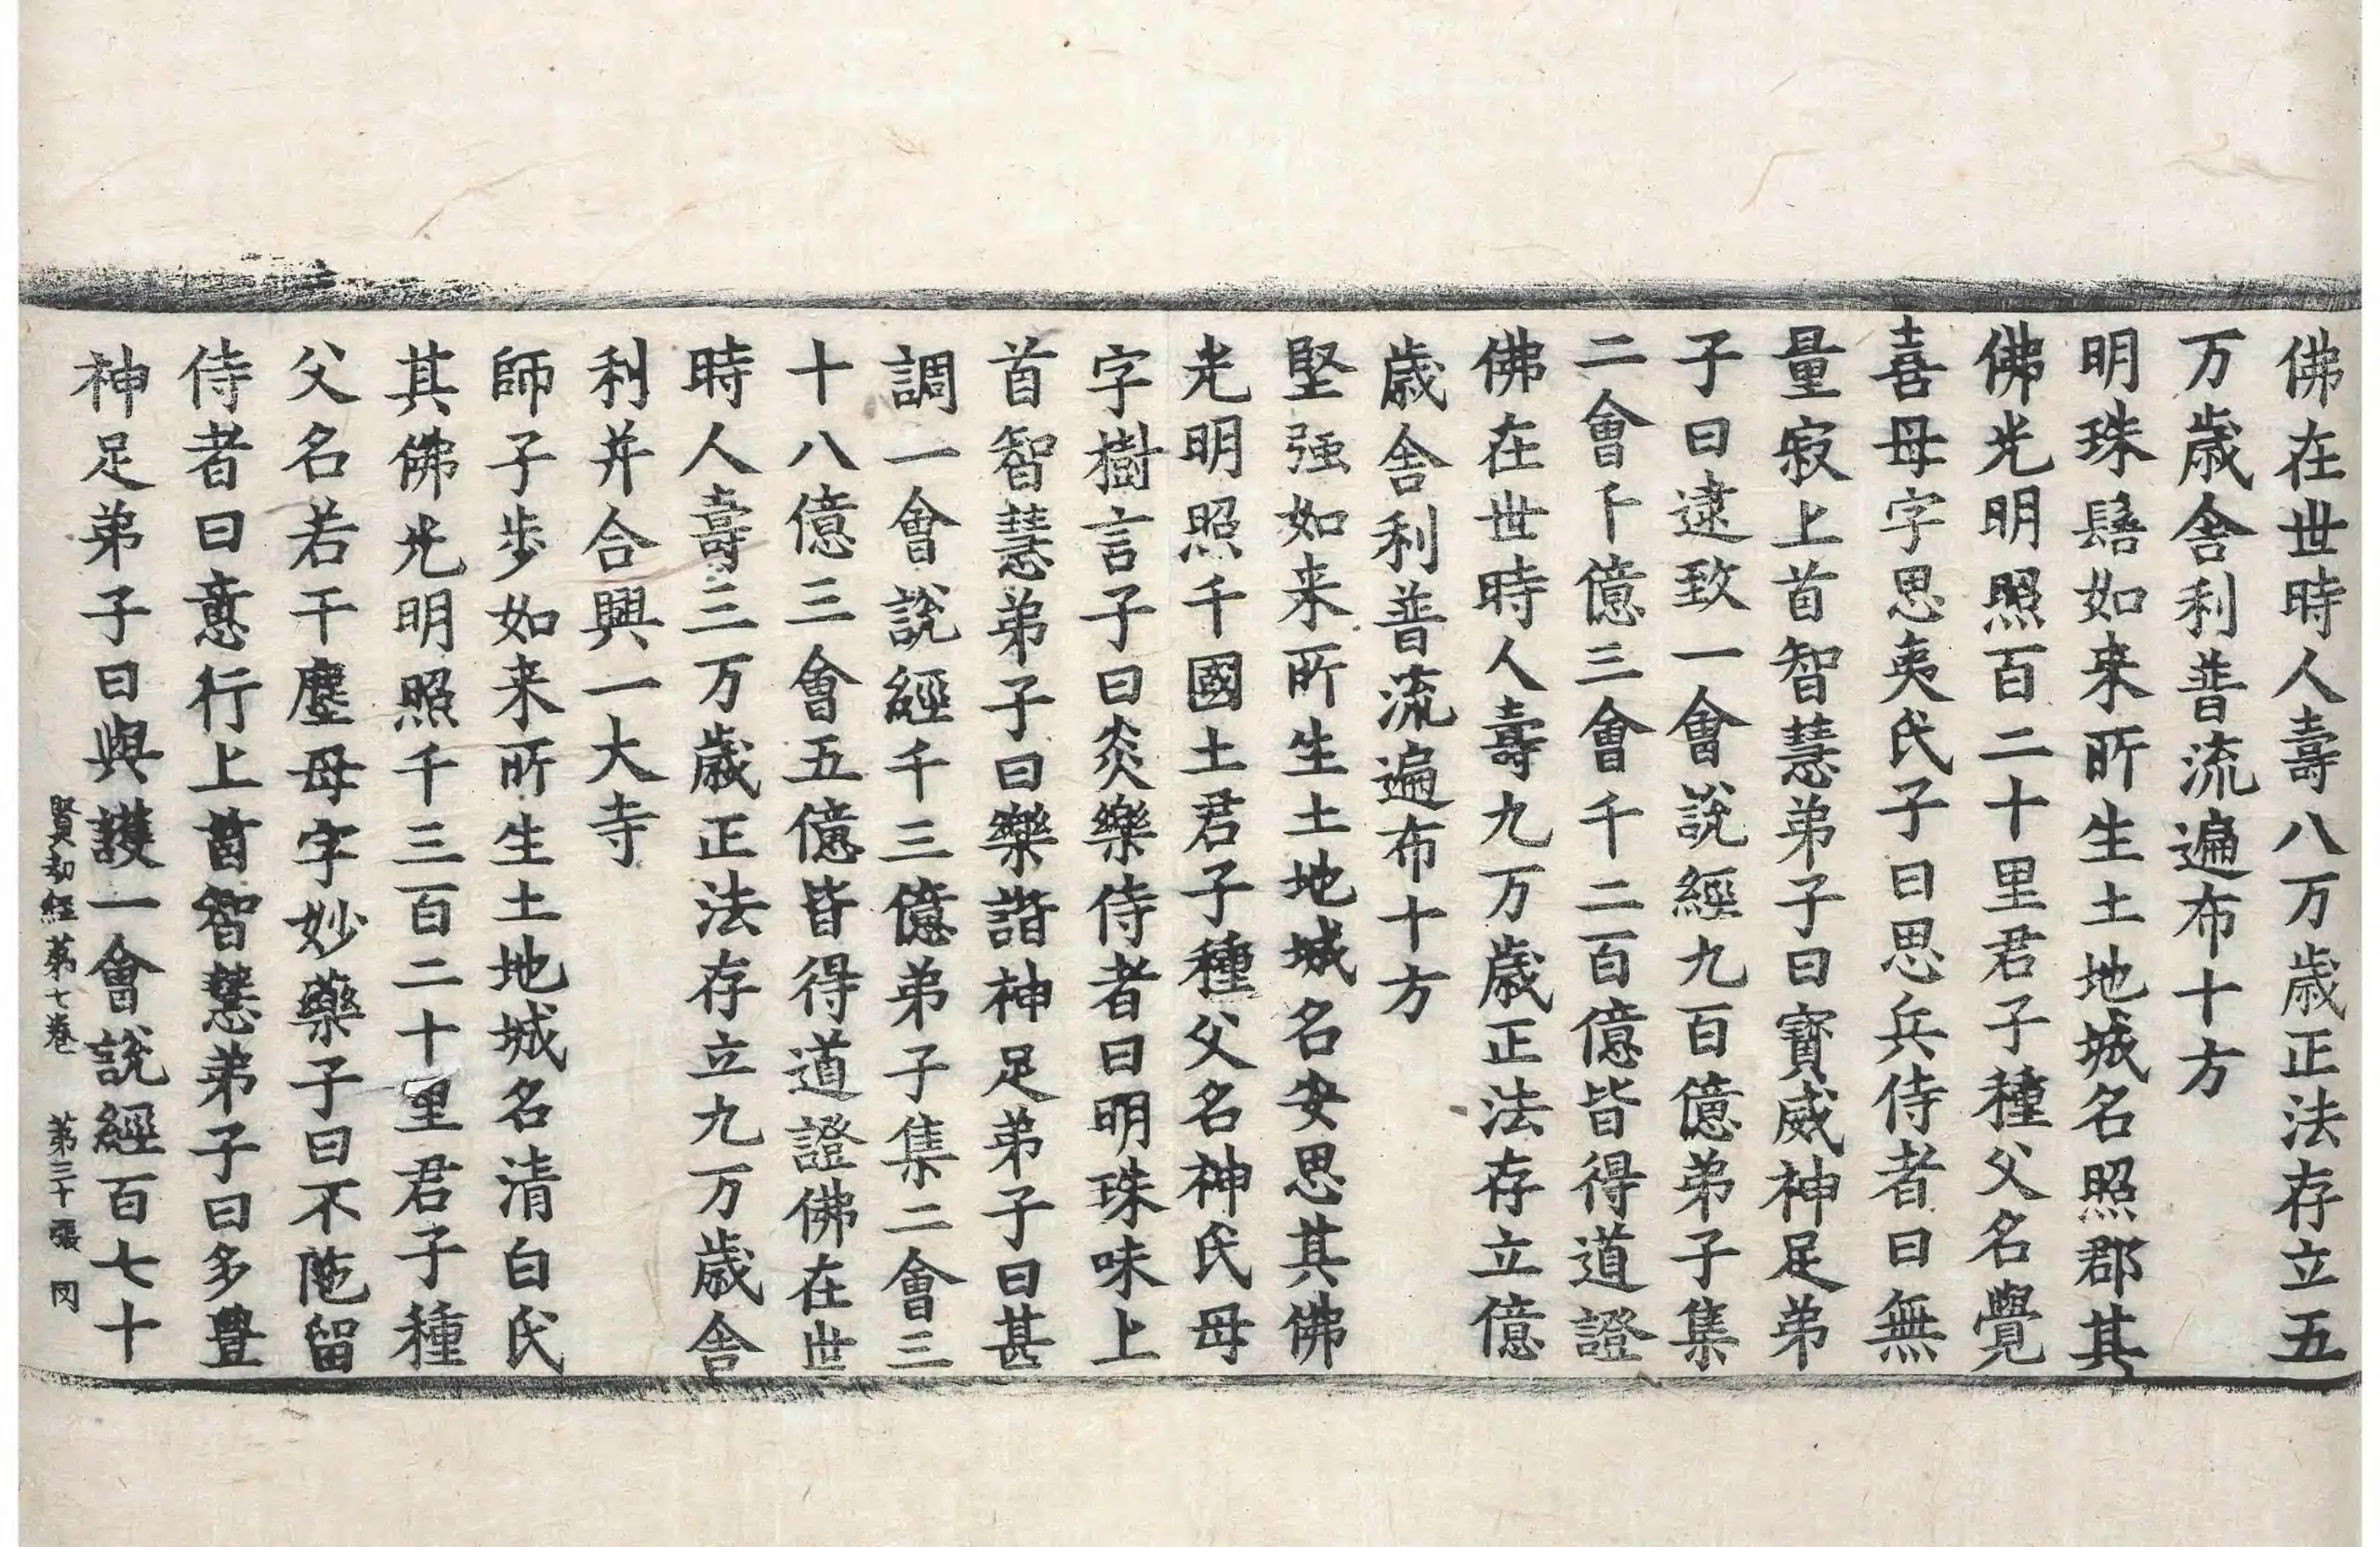 佛在世時人壽八万歳正法存立五
万歳舎利普流遍布十方
明珠髻如来所生土地城名照郡其
佛光明照百二十里君子種父名覺
喜母字思夷氏子曰思兵侍者曰無
量寂上首智慧弟子曰寳威神足弟
子曰逮致一會說經九百億弟子集
二會千億三會千二百億皆得道證
佛在世時人壽九万歳正法存立億
歳舎利普流遍布十方
堅强如来所生土地城名安思其佛
光明照千國土君子種父名神氏母
字樹言子曰炎樂侍者曰明珠味上
首智慧弟子曰樂諧神足弟子曰甚
調一會說經千三億弟子集二會三
十八億三會五億皆得道證佛在世
時人壽三万歳正法存立九万歳舎
利并合興一大寺
師子步如来所生土地城名清白氏
其佛光明照千三百二十里君子種
父名若干塵母字妙藥子曰不陁留
侍者曰意行上首智慧弟子曰多豊
神足弟子曰與護一會說經百七十
賢劫經第七卷 第三十張 冈